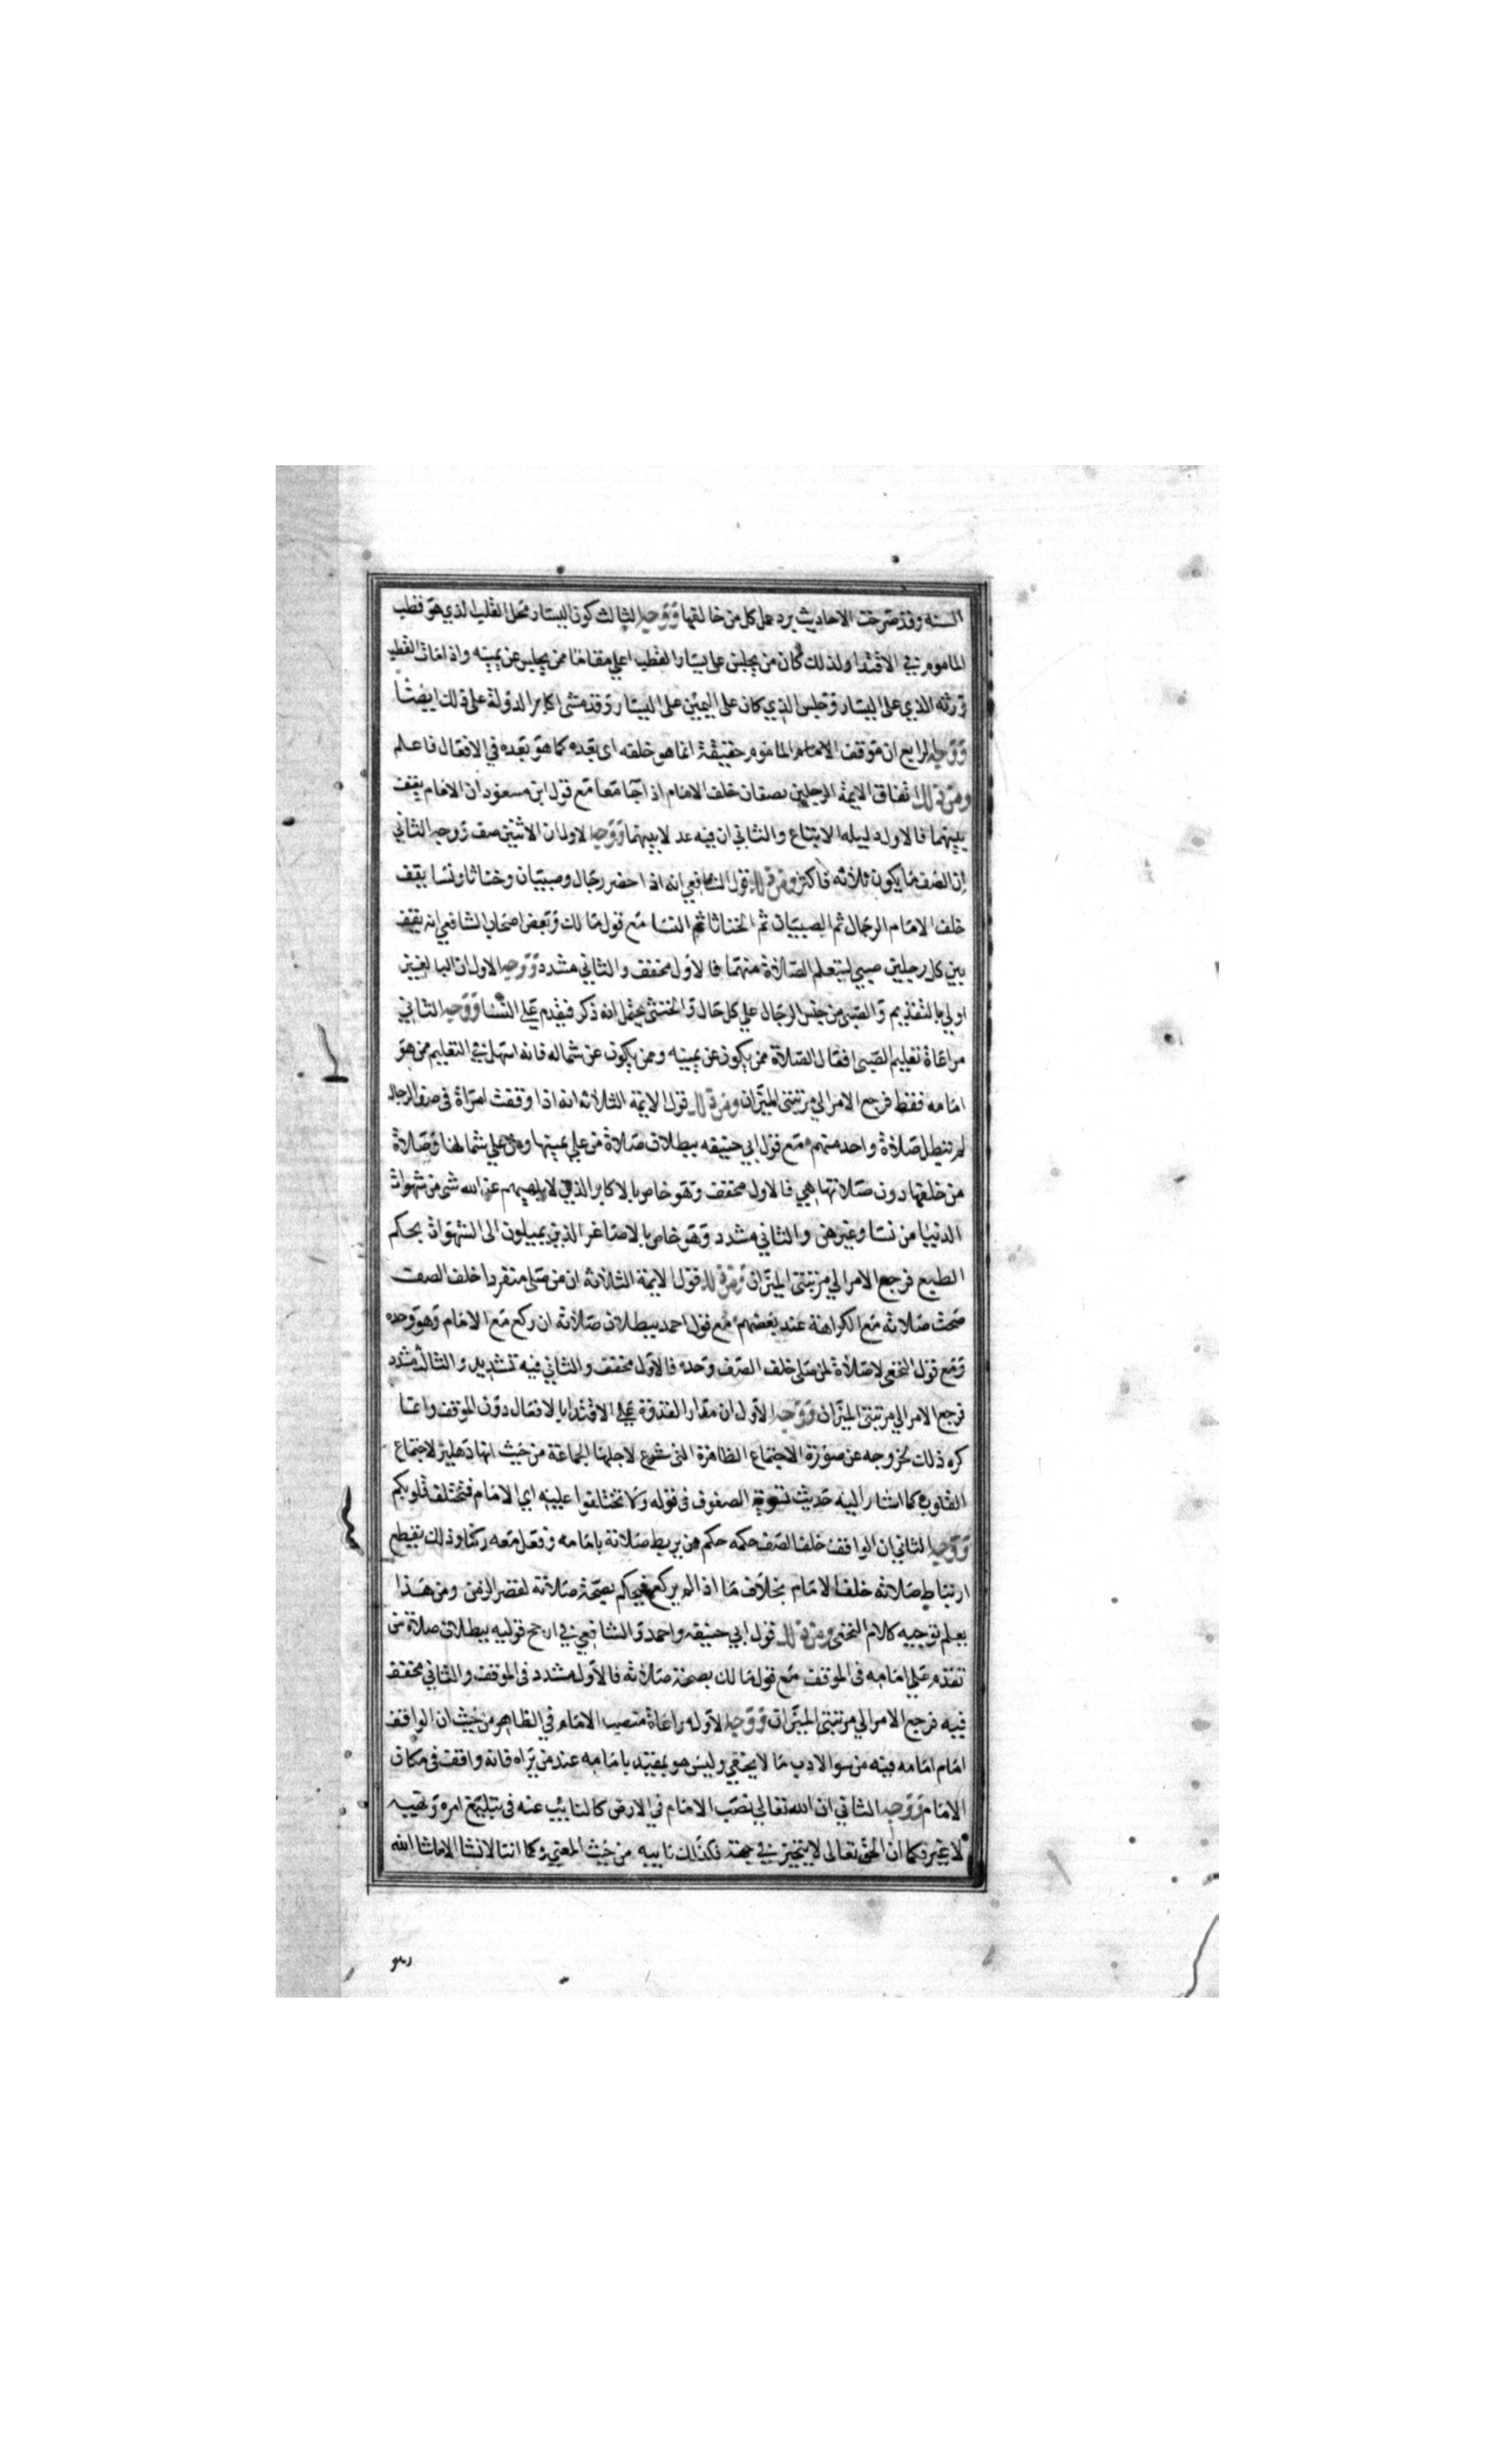 السنه وقد صرحت الاحاديث برد عمل كل من خالفها ووجه الثالث كون اليسار محل القلب الذي هو قطب
الماموم في الاقتدا ولذلك كان من يجلس على يسار القطب اعلي مقاما ممن يجلس عن يمينه واذا مات القطب
ورثه الذي على اليسار وجلس الذي كان على اليمين على اليسار وقد مشى اكابر الدولة على ذلك ايضا
ووجه الرابع ان موقف الامام الماموم حقيقة انما هو خلفه اى بعده كما هو بعده في الافعال فاعلم
ومن ذلك اتفاق الايمة الرجلين يصفان خلف الامام اذا جا معا مع قول ابن مسعود ان الامام يقف
بينهما فالاول دليله الاتباع والثاني ان فيه عدلا بينهما ووجه الاول ان الاثنين صف ووجه الثاني
ان الصف ما يكون ثلاثه فاكثر ومن ذلك قول الشافعي انه اذا حضر رجال وصبيان وخناثا ونسا يقف
خلف الامام الرجال ثم الصبيان ثم الخناثا ثم النسا مع قول مالك وبعض اصحاب الشافعي انه يقف
بين كل رجلين صبي ليتعلم الصلاة منهما فالاول مخفف والثاني مشدد ووجه الاول ان البالغين
اولي بالتقديم والصبى من جنس الرجال علي كل حال والخنثى يحتمل انه ذكر فيقدم علي النسا ووجه الثاني
مراعاة تعليم الصبى افعال الصلاة ممن يكون عن يمينه وممن يكون عن شماله فانه اسهل في التعليم ممن هو
امامه فقط فرجع الامر الي مرتبتى الميزان ومن ذلك قول الايمة الثلاثه انه اذا وقفت امراة فى صف الرجال
لم تبطل صلاة واحد منهم مع قول ابي حنيفه ببطلان صلاة من علي يمينها ومن علي شمالها وصلاة
من خلفها دون صلاتها هي فالاول مخفف وهو خاص بالاكابر الذين لا يلهيهم عن الله شى من شهوات
الدنيا من نسا وغيرهن والثاني مشدد وهو خاص بالاصاغر الذين يميلون الى الشهوات بحكم
الطبع فرجع الامر الي مرتبتى الميزان ومن ذلك قول الايمة الثلاثه ان من صلى منفردا خلف الصف
صحت صلاته مع الكراهة عند بعضهم مع قول احمد ببطلان صلاته ان ركع مع الامام وهو وحده
ومع قول النخعى لا صلاة لمن صلى خلف الصف وحده فالاول مخفف والثاني فيه تشديد والثالث مشدد
فرجع الامر الي مرتبتى الميزان ووجه الاول ان مدار القدوة علي الاقتدا بالافعال دون الموقف وانما
كره ذلك لخروجه عن صورة الاجتماع الظاهرة التى شرع لاجلها الجماعة من حيث انها دهليز لاجتماع
القلوب كما اشار اليه حديث تسوية الصفوف فى قوله ولا تختلفوا عليه اي الامام فتختلف قلوبكم
ووجه الثاني ان الواقف خلف الصف حكمه حكم من يربط صلاته بامامه وفعل معه ركنا وذلك يقطع
ارتباط صلاته خلف الامام بخلاف ما اذا لم يركع فيحكم بصحة صلاته لقصر الزمن ومن هذا
يعلم توجيه كلام النخعى ومن ذلك قول ابي حنيفه واحمد والشافعي في ارجح قوليه ببطلان صلاة من
تقدم علي امامه فى الموقف مع قول مالك بصحة صلاته فالاول مشدد فى الموقف والثاني مخفف
فيه فرجع الامر الي مرتبتى الميزان ووجه الاول مراعاة منصب الامام في الظاهر من حيث ان الواقف
امام امامه فيه من سو الادب ما لا يخفي وليس هو بمقتد بامامه عند من يراه فانه واقف فى مكان
الامام ووجه الثاني ان الله تعالي نصب الامام في الارض كالنايب عنه فى تبليغ امره ونهيه
لا غير وكما ان الحق تعالى لا يتحيز في جهة فكذلك نايبه من حيث المعنى وكما اننا لا نشا الا ما شا الله